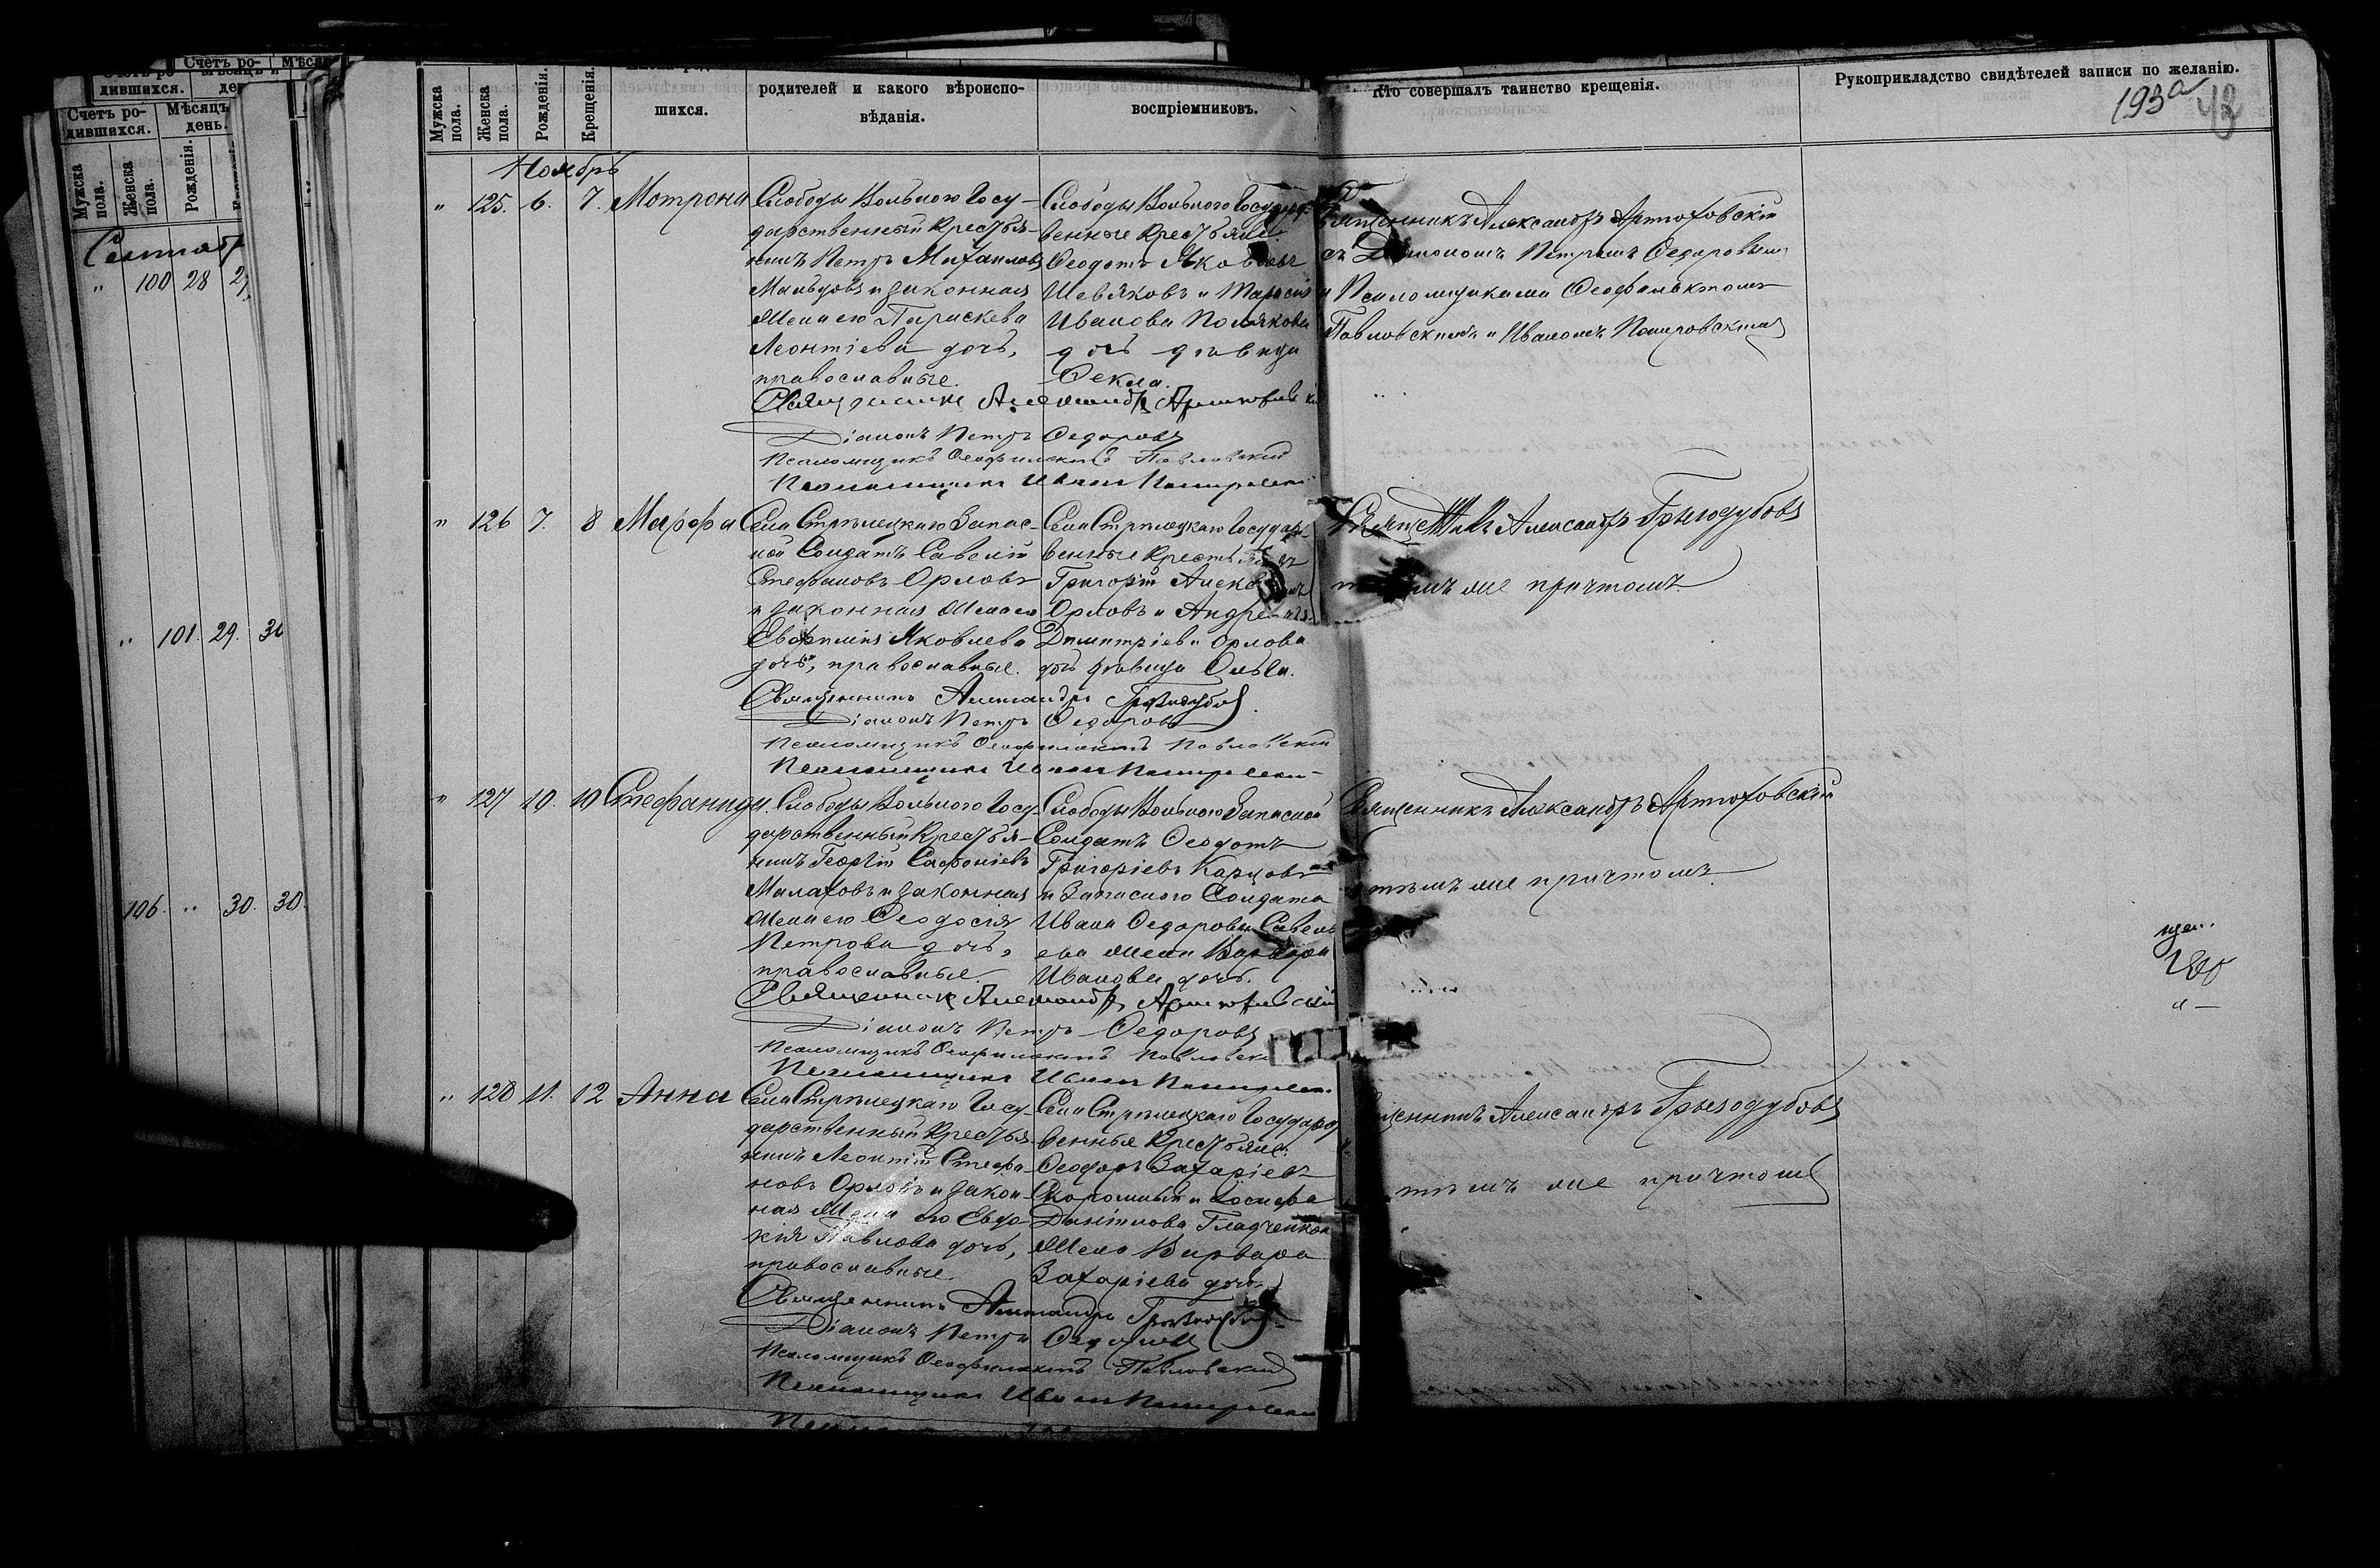 Счетъ ро-
Мѣся
дившихся.
Счетъ ро-
дившихся.
Мѣсяцъ
день.
Мужска пола.
Женска пола.
Рожденія.
Сентябр
" 100 28 2
" 101. 29. 30
106. " 30. 30.
Мужска пола.
Женска пола.
Рожденія.
Крещенія.
шихся.
родителей и какого вѣроиспо-
вѣданія.
воспріемниковъ.
Кто совершалъ таинство крещенія.
Рукоприкладство свидѣтелей записи по желанію.
193а
Ноябрь
" 125. 6. 7. Мотрона
Слободы Вольного Госу-
дарственный крестья-
нинъ Петръ Михаиловъ
и законная
жена его Параскева
Леонтіева дочь,
православные.
Слободы Вольного Государ-
венные крестьяне
Ѳеодотъ Яковлевъ
Шевяковъ и
Иванова Полякова
дочь дѣвица
Ѳекла.
Священникъ Александръ Артюховскій
съ Діакономъ Петромъ Ѳедоровымъ
и Псаломщиками Ѳеофилактомъ
Павловскимъ и Иваномъ
Священникъ Александръ Артюховскій
Діаконъ Петръ Ѳедоровъ
Псаломщикъ Ѳеофилактъ Павловскій
Псаломщикъ Иванъ
" 126 7. 8 Марфа
Села Стрѣлецкаго Запас-
ной Солдатъ Савелій
Стефановъ Орловъ
и законная жена его
Евфимія Яковлева
дочь, православные.
Села Стрѣлецкаго Государ-
венные крестьяне
Григорій
Орловъ и Андрея
Димитріева Орлова
дочь дѣвица Ольга.
Священникъ Александръ Грызодубовъ
тѣмъ же причтомъ.
Священникъ Александръ Грызодубовъ
Діаконъ Петръ Ѳедоровъ
Псаломщикъ Ѳеофилактъ Павловскій
Псаломщикъ Иванъ
" 127 10. 10 Стефанида
Слободы Вольного Госу-
дарственный крестья-
нинъ Георгій Сафоніевъ
Малаховъ и законная
жена его Ѳеодосія
Петрова дочь,
православные.
Слободы Вольного Запасной
Солдатъ Ѳеодотъ
Григоріевъ Карцовъ
и Запасного Солдата
Ивана Ѳедорова Савель
ева жена Варвара
Иванова дочь.
Священникъ Александръ Артюховскій
тѣмъ же причтомъ.
Священникъ Александръ Артюховскій
Діаконъ Петръ Ѳедоровъ
Псаломщикъ Ѳеофилактъ Павловскій
Псаломщикъ Иванъ
" 128 11. 12 Анна
Села Стрѣлецкаго Госу-
дарственный крестья-
нинъ Леонтій Стефа-
новъ Орловъ и закон-
ная жена его Евдо-
кія Павлова дочь,
православные.
Села Стрѣлецкаго Государ
венные крестьяне:
Ѳеодоръ Захаріевъ
и Іосифа
Даніилова Гладченкова
жена Варвара
Захаріева дочь.
Священникъ Александръ Грызодубовъ
тѣмъ же причтомъ
Священникъ Александръ Грызодубовъ
Діаконъ Петръ Ѳедоровъ
Псаломщикъ Ѳеофилактъ Павловскій
Псаломщикъ Иванъ